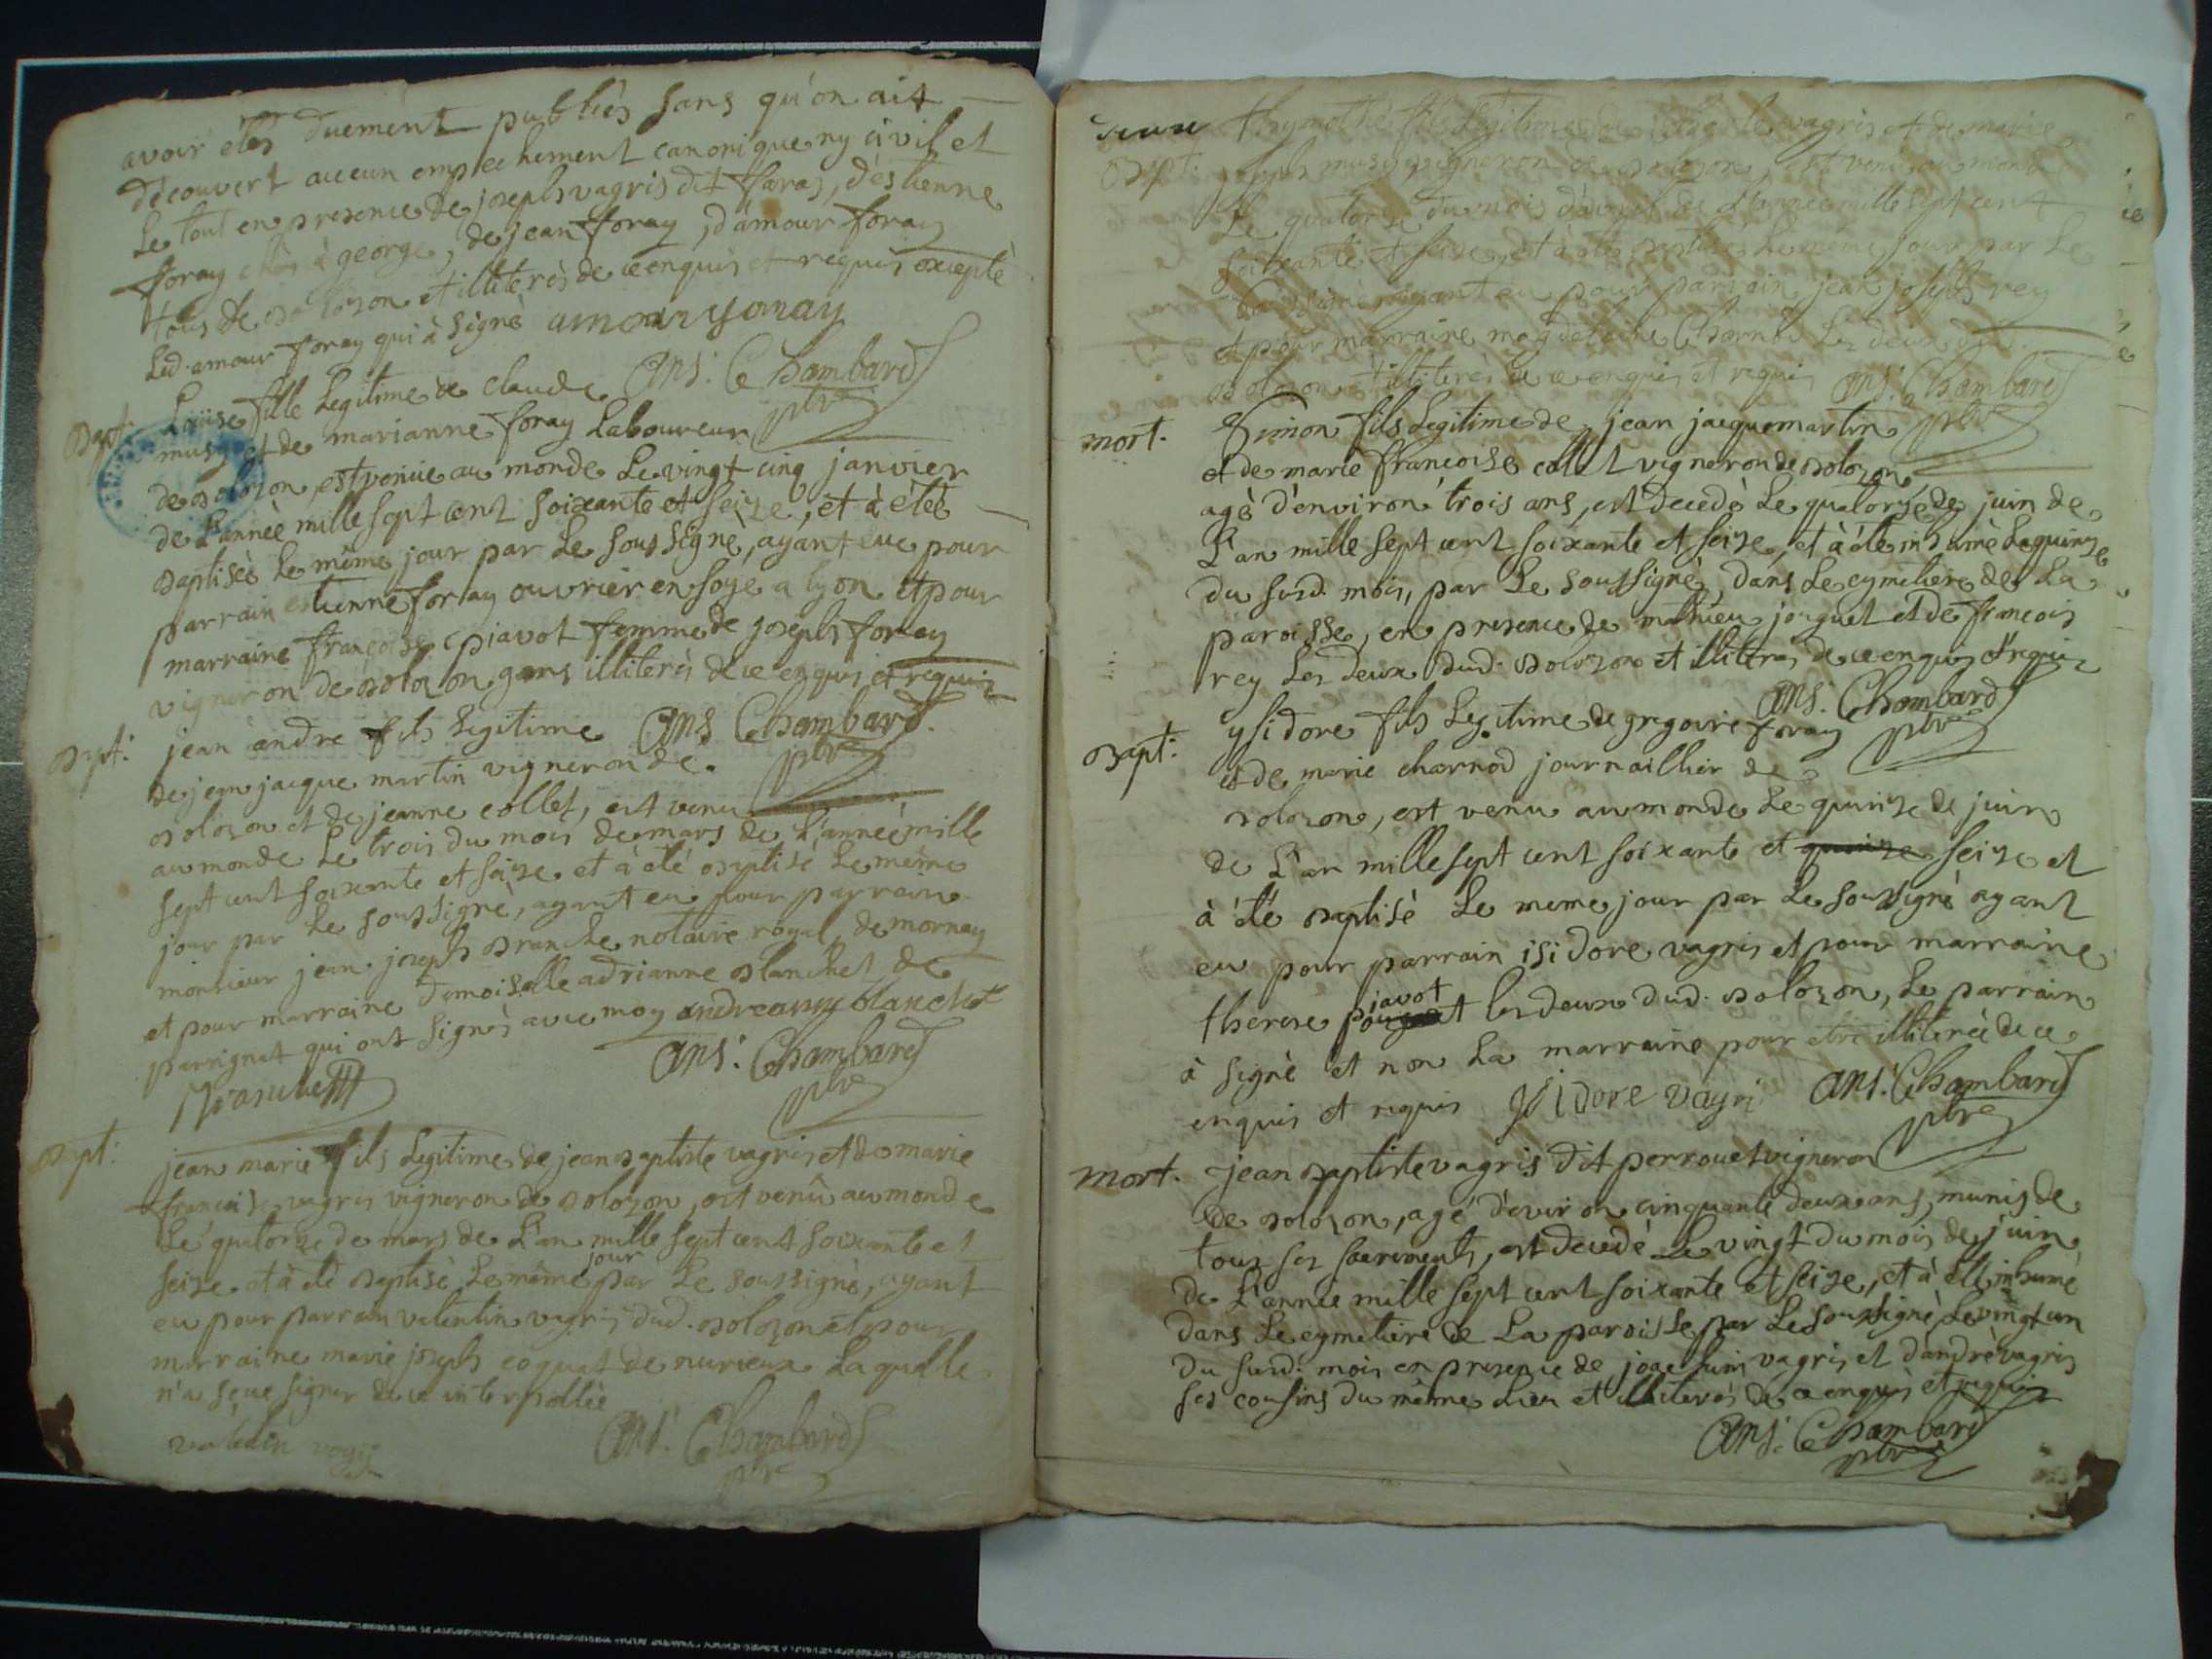 avoir etés duement publiés sans qu'on ait
découvert aucun empechement canonique ny civil et
Le tout en presence de joseph vagris dit faraz, d'éstienne
foray à george, de jean foray, d'amour foray
tous de bolozon et illiterés de ce enquis et requis excepté
Led. amour foray qui à signé amour foray
ans. Chambard
ptre
bapt.
Loüise fille Legitime de claude
musy et de marianne foray Laboureur
de bolozon, est venüe au monde Le vingt cinq janvier
de L'année mille sept cent soixante et seize, et à étée
baptisée Le même jour par Le soussigné, ayant eue pour
parrain estienne foray ouvrier en soye a lyon et pour
marraine françoise piavot femme de joseph foray
vigneron de bolozon gens illiterés de ce enquis et requis
ans Chambard.
ptre
bapt:
jean andre fils legitime
de jean jacque martin vigneron de
bolozon et de jeanne collet, est venu
au monde Le trois du mois de mars de L'année mille
sept cent soixante et seize et à été baptisé Le même
jour par Le soussigné, ayant eu pour parrain
monsieur jean joseph branche notaire royal de mornay
et pour marraine demoiselle adrianne blanchet de
parrignat qui ont signés avec moy andreanne blanchet
ans: Chambard
ptre
bapt:
jean marie fils Legitime de jean baptiste vagris et de marie
françoise vagris vigneron de bolozon, est venû au monde
Le quatorze de mars de L'an mille sept cent soixante et
seize et à été baptisé Le même jour par Le soussigné, ayant
eu pour parrain valentin vagris dud. bolozon et pour
marraine marie joseph coquat de nurieux Laquelle
n'a sçue signer de ce interpellée
ans: Chambard
ptre
bapt:
thymothé fils Légitime de vagris et de marie
joseph musy vigneron de bolozon, est venu au monde
Le quatorze du mois d'avril de L'année mille sept cent
soixante et seize, et à été baptisé Le même jour par Le
soussigné, ayant eu pour parrain jean joseph rey
et pour marraine magdelaine Charnod Les deux dud.
bolozon et illiterés de ce enquis et requis
ans: Chambard
ptre
mort.
Simon fils Legitime de jean jacquemartin
et de marie françoise collet vigneron de bolozon,
agé d'environ trois ans, est decedé Le quatorze de juin de
L'an mille sept cent soixante et seize, et à été inhumé Le quinze
du susd. mois, par Le soussigné, dans Le cymetiere de La
paroisse, en presence de mathieu joguet et de francois
rey Les deux dud. bolozon et illiteres de ce enquis et requis
ans: Chambard
ptre
bapt:
ysidore fils Legitime de gregoire foray
et de marie charnod journaillier de
bolozon, est venu au monde Le quinze de juin
de L'an mille sept cent soixante et quinze seize et
à été baptisé Le meme jour par Le soussigné ayant
eu pour parrain isidore vagris et pour marraine
therese piavot les deux dud. bolozon, Le parrain
à signé et non La marraine pour etre illiterée de ce
enquis et requis isidore vagri ans: Chambard
ptre
mort.
jean baptiste vagris dit perrouet vigneron
de bolozon, agé d'eviron cinquante deux ans, munis de
tous ses sacrements, est decedé Le vingt du mois de juin
de L'année mille sept cent soixante et seize, et à été inhumé
dans Le cymetiere de La paroisse par Le soussigné Le vingt un
du susd. mois en presence de joachim vagris et d'andré vagris
ses cousins du même Lieu et illiterés de ce enquis et requis
ans: Chambard
ptre